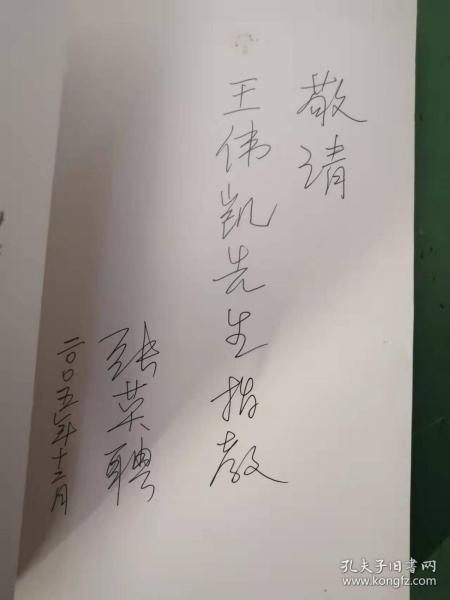 敬请
王伟凯先生指教
张英聘
二〇〇五年十二月
孔夫子旧书网
www.kongfz.com